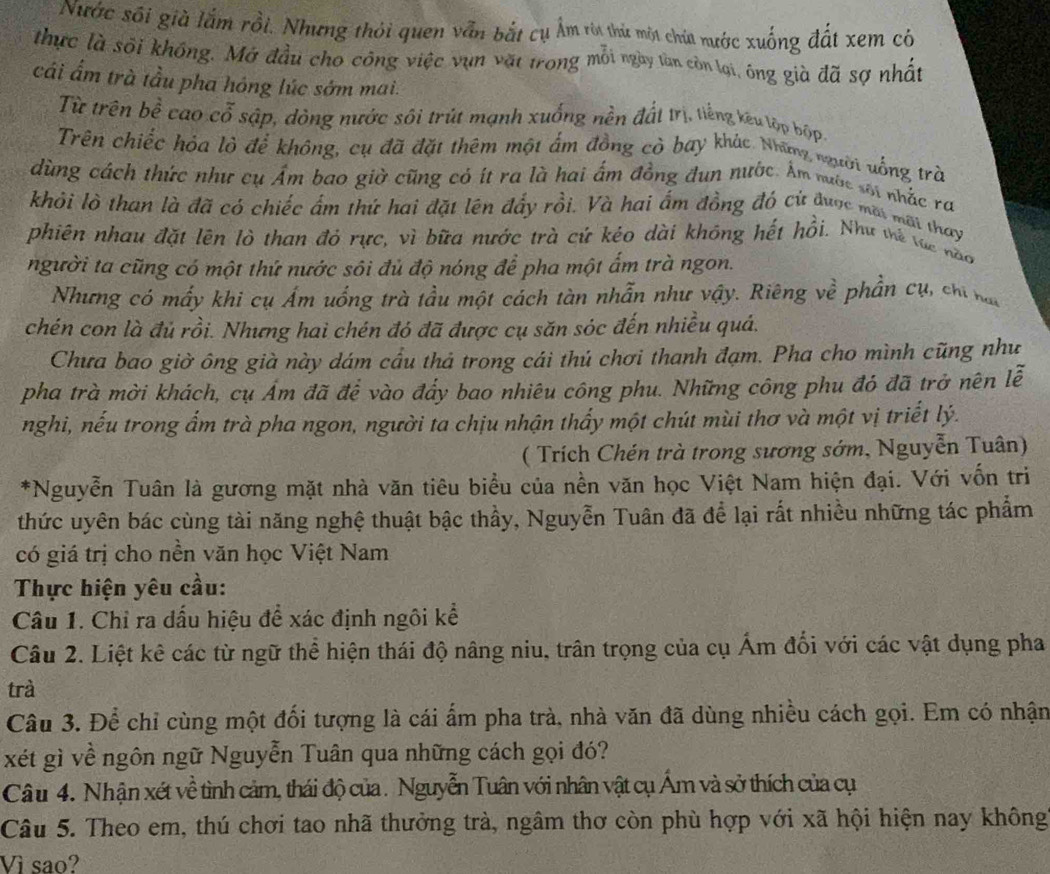 Nước sôi già lắm rồi. Nhưng thói quen vẫn bắt cụ Ấm rót thử một chút nước xuống đất xem có
thực là sôi không. Mở đầu cho công việc vụn vặt trong mỗi ngày tàn còn lại, ông già đã sợ nhất
cái ấm trà tầu pha hỏng lúc sớm mai.
Từ trên bề cao cỗ sập, dòng nước sôi trút mạnh xuống nền đất trị, tiếng kêu lộp bộp.
Trên chiếc hỏa lò để không, cụ đã đặt thêm một ấm đồng cò bay khác. Những người uống trà
dùng cách thức như cụ Ấm bao giờ cũng có ít ra là hai ấm đồng đun nước. Ấm nước sôi nhắc ra
khỏi lò than là đã có chiếc ấm thứ hai đặt lên đấy rồi. Và hai ấm đồng đó cứ được mãi mãi thay
phiên nhau đặt lên lò than đỏ rực, vì bữa nước trà cứ kéo dài không hết hồi. Như thế lúc nào
người ta cũng có một thứ nước sôi đủ độ nóng để pha một ấm trà ngon.
Nhưng có mấy khi cụ Ấm uống trà tầu một cách tàn nhẫn như vậy. Riêng về phần cụ, chỉ hai
chén con là đủ rồi. Nhưng hai chén đó đã được cụ săn sóc đến nhiều quá.
Chưa bao giờ ông già này dám cẩu thả trong cái thú chơi thanh đạm. Pha cho mình cũng như
pha trà mời khách, cụ Ấm đã để vào đấy bao nhiêu công phu. Những công phu đó đã trở nên lễ
nghi, nếu trong ấm trà pha ngon, người ta chịu nhận thấy một chút mùi thơ và một vị triết lý.
( Trích Chén trà trong sương sớm, Nguyễn Tuân)
*Nguyễn Tuân là gương mặt nhà văn tiêu biểu của nền văn học Việt Nam hiện đại. Với vốn tri
thức uyên bác cùng tài năng nghệ thuật bậc thầy, Nguyễn Tuân đã để lại rất nhiều những tác phẩm
có giá trị cho nền văn học Việt Nam
Thực hiện yêu cầu:
Câu 1. Chỉ ra dấu hiệu để xác định ngôi kể
Câu 2. Liệt kê các từ ngữ thể hiện thái độ nâng niu, trân trọng của cụ Ấm đối với các vật dụng pha
trà
Câu 3. Để chỉ cùng một đối tượng là cái ấm pha trà, nhà văn đã dùng nhiều cách gọi. Em có nhận
xét gì về ngôn ngữ Nguyễn Tuân qua những cách gọi đó?
Câu 4. Nhận xét về tình cảm, thái độ của . Nguyễn Tuân với nhân vật cụ Ấm và sở thích của cụ
Câu 5. Theo em, thú chơi tao nhã thưởng trà, ngâm thơ còn phù hợp với xã hội hiện nay không
Vì sao?